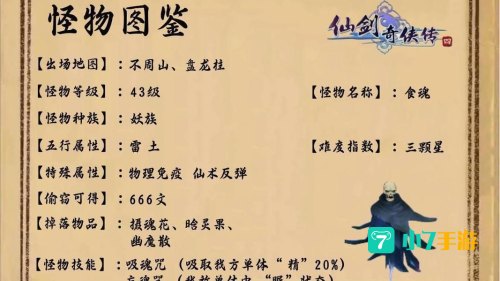 怪物图鉴
仙剑奇侠传 四
【出场地图】：不周山、盘龙柱
【怪物等级】：43级
【怪物名称】：食魂
【怪物种族】：妖族
【五行属性】：雷 土
【难度指数】：三颗星
【特殊属性】：物理免疫 仙术反弹
【偷窃可得】：666文
【掉落物品】：摄魂花、晗灵果、
幽魔散
7 小7手游
【怪物技能】：吸魂咒（吸取我方单体“精”20%）